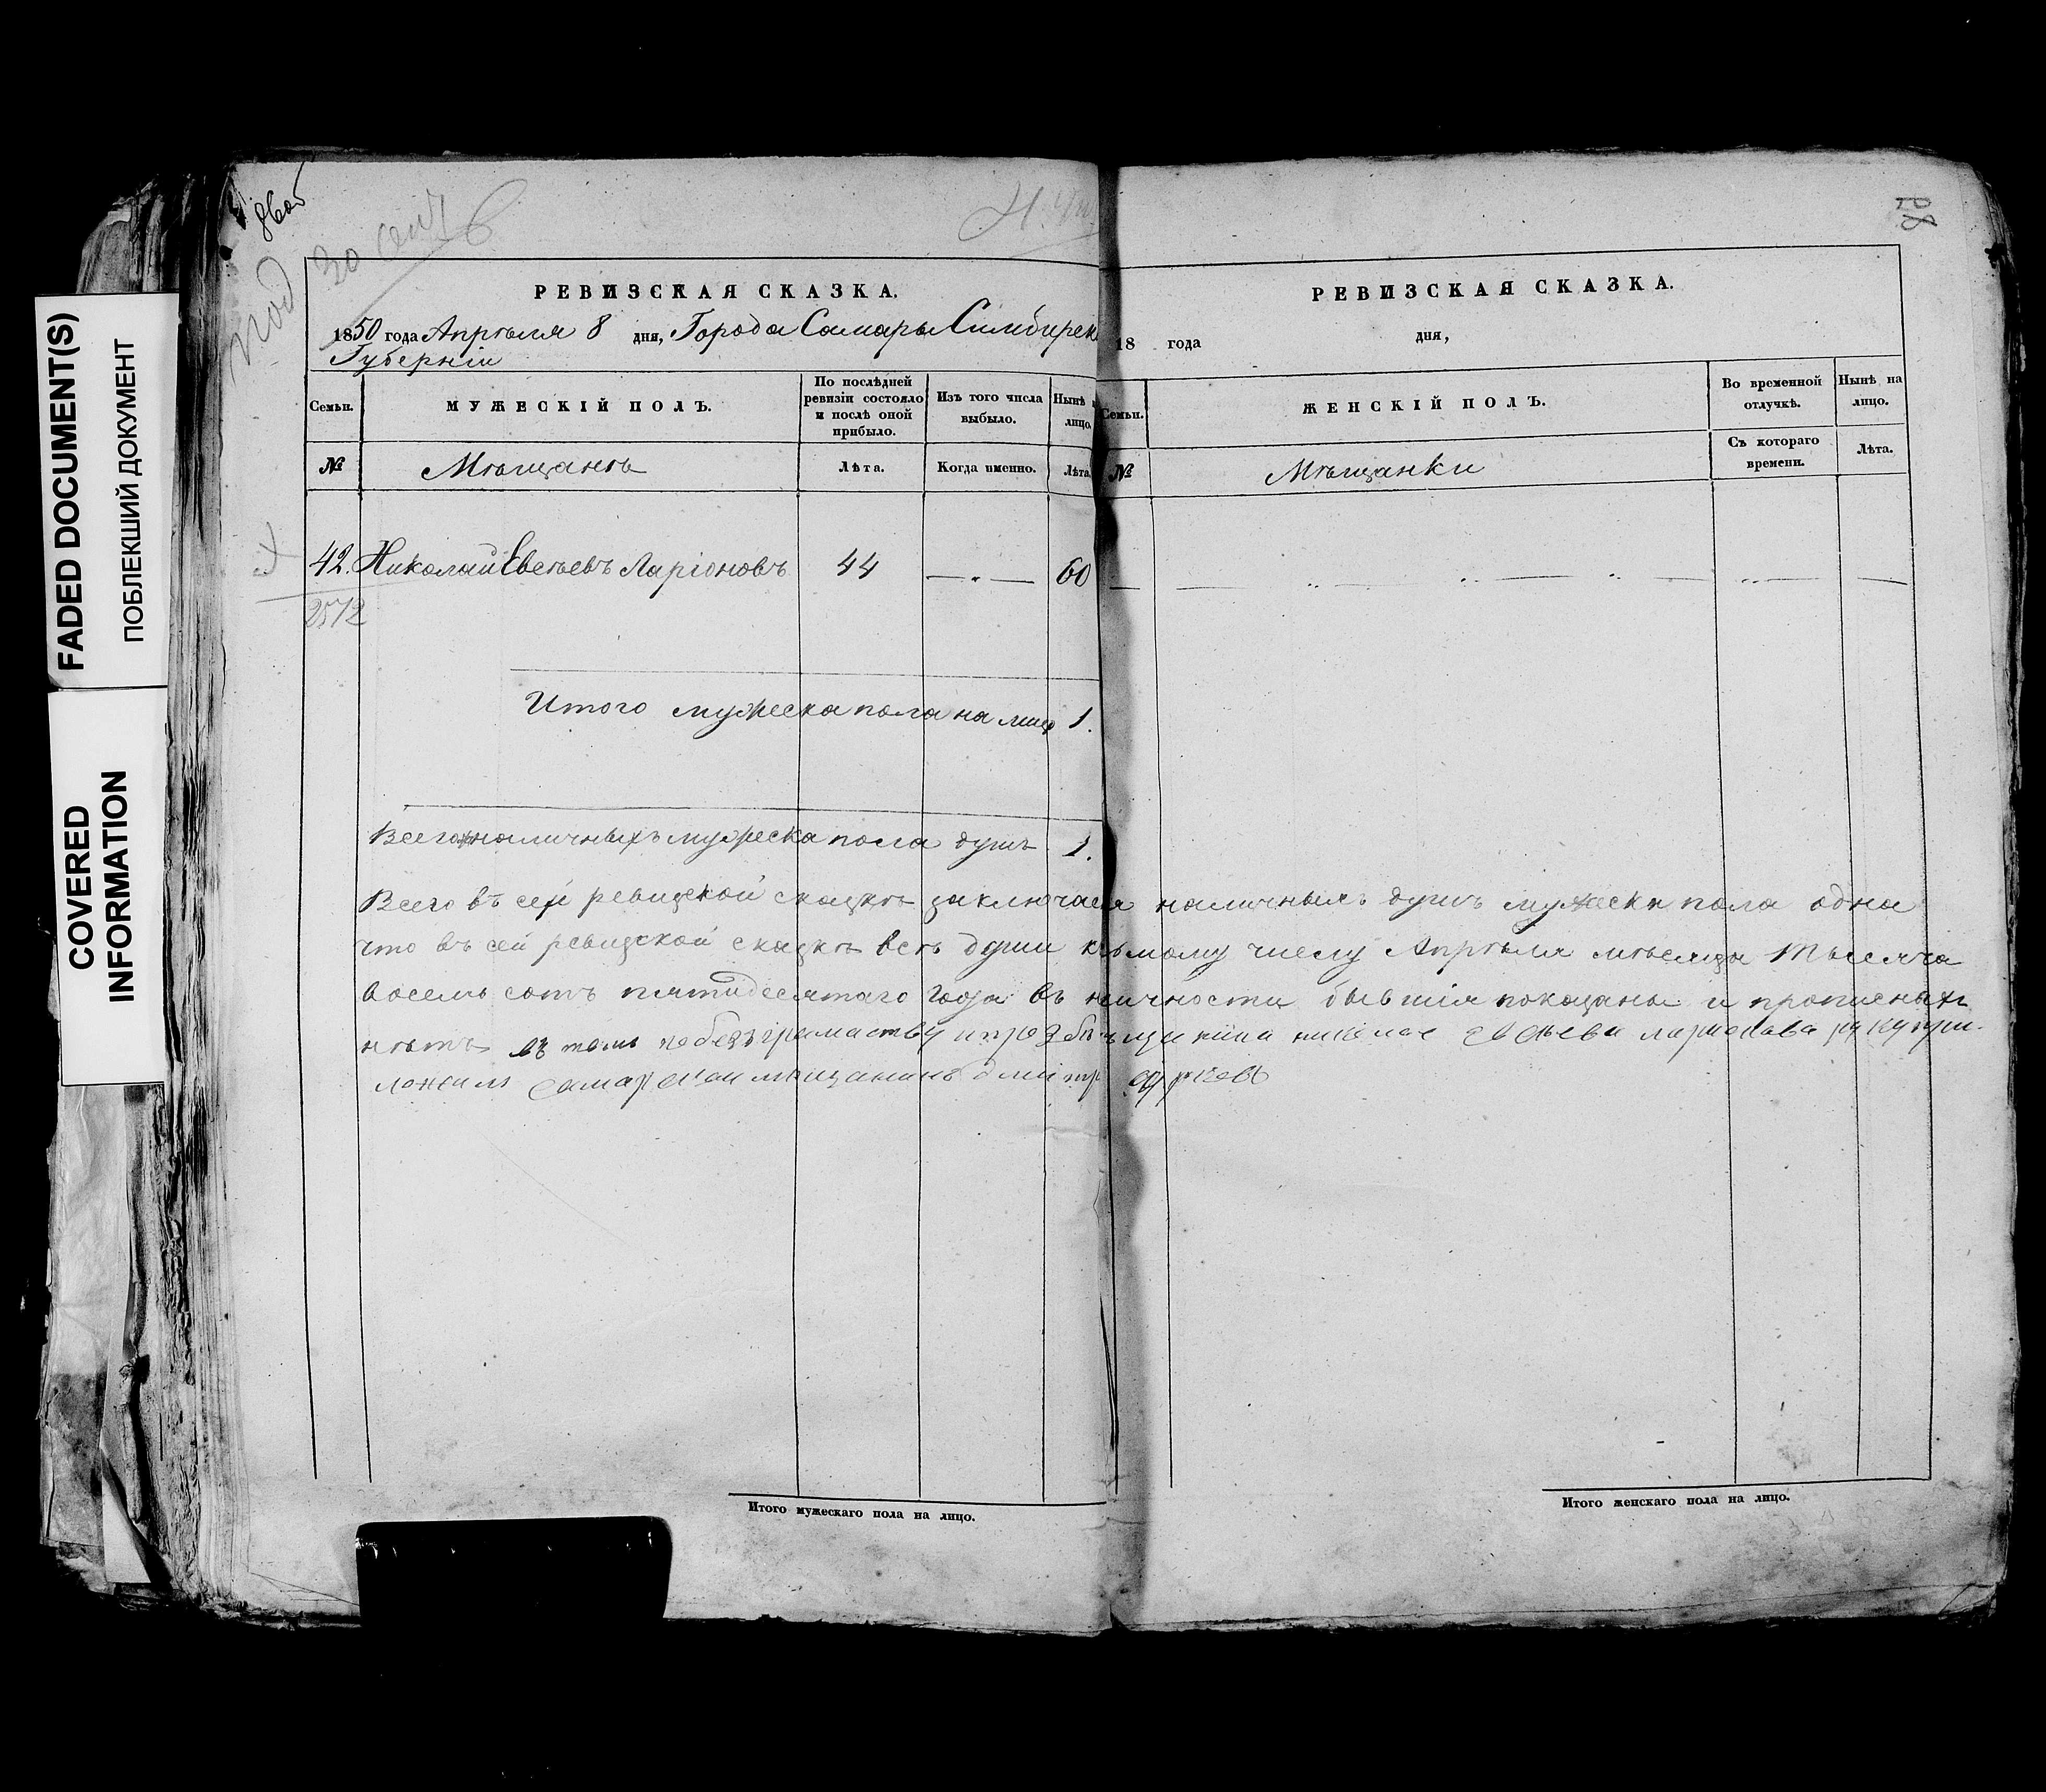 FADED DOCUMENT(S)
ПОБЛЕКШИЙ ДОКУМЕНТ
COVERED
INFORMATION
28
РЕВИЗСКАЯ СКАЗКА.
1850 года Апрѣля 8 дня, Города Самары Симбирск
Губерніи
Семьи.
МУЖЕСКІЙ ПОЛЪ.
По послѣдней
ревизіи состояло
и послѣ оной
прибыло.
Изъ того числа
выбыло.
Нынѣ
лицо.
№
Мѣщанъ
Лѣта.
Когда именно.
Лѣта
42. Николай Евсѣевъ Ларіоновъ 44 60
2572
Итого мужеска пола на лицо 1.
Всего наличныхъ мужеска пола душъ 1.
РЕВИЗСКАЯ СКАЗКА.
18 года дня,
Семьи.
ЖЕНСКІЙ ПОЛЪ.
Во временной
отлучкѣ.
Нынѣ на
лицо.
№
Мѣщанки
Съ котораго
времени.
Лѣта.
Всего въ сей ревизской сказкѣ заключается наличныхъ душъ мужеска пола одна
что въ сей ревизской сказкѣ всѣ души къ числу Апрѣля мѣсяца тысяча
восемь сотъ пятидесятаго года въ бывшія показаны и прописныхъ
нѣтъ въ томъ по безграмоству Евсѣева Ларионова руку при-
ложилъ самарской мещанинъ
Итого мужескаго пола на лицо.
Итого женскаго пола на лицо.